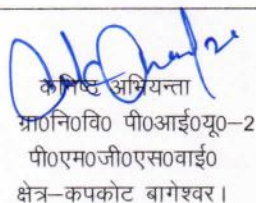 कनिष्ठ अभियन्ता
ग्रा०नि०वि० पी०आई०यू०–2
पी०एम०जी०एस०वाई०
क्षेत्र–कपकोट बागेश्वर।